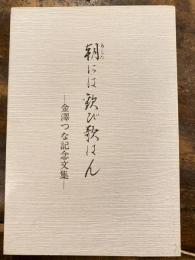 あした
朝には歓び歌はん
―金澤つな記念文集―